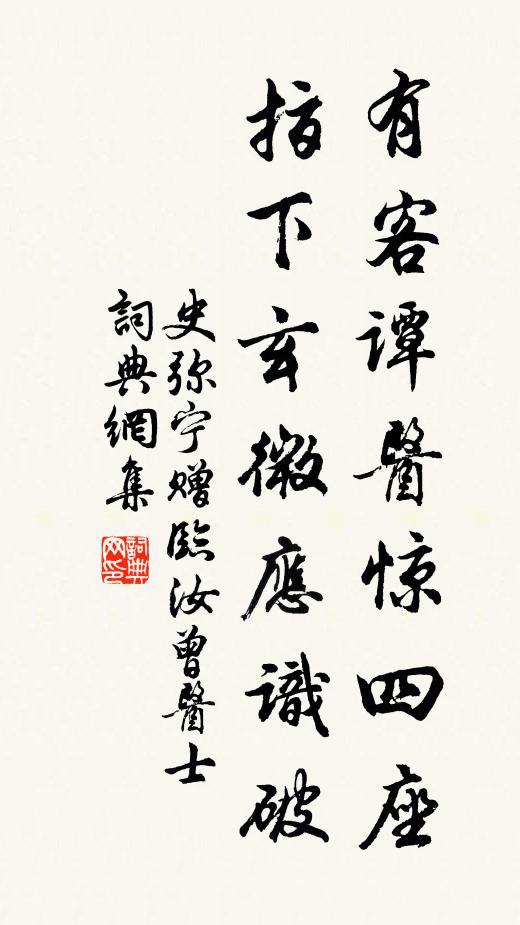 有客谭醫惊四座
指下玄微應識破
史弥宁赠臨汝曾醫士
詞典網集
詞典网印